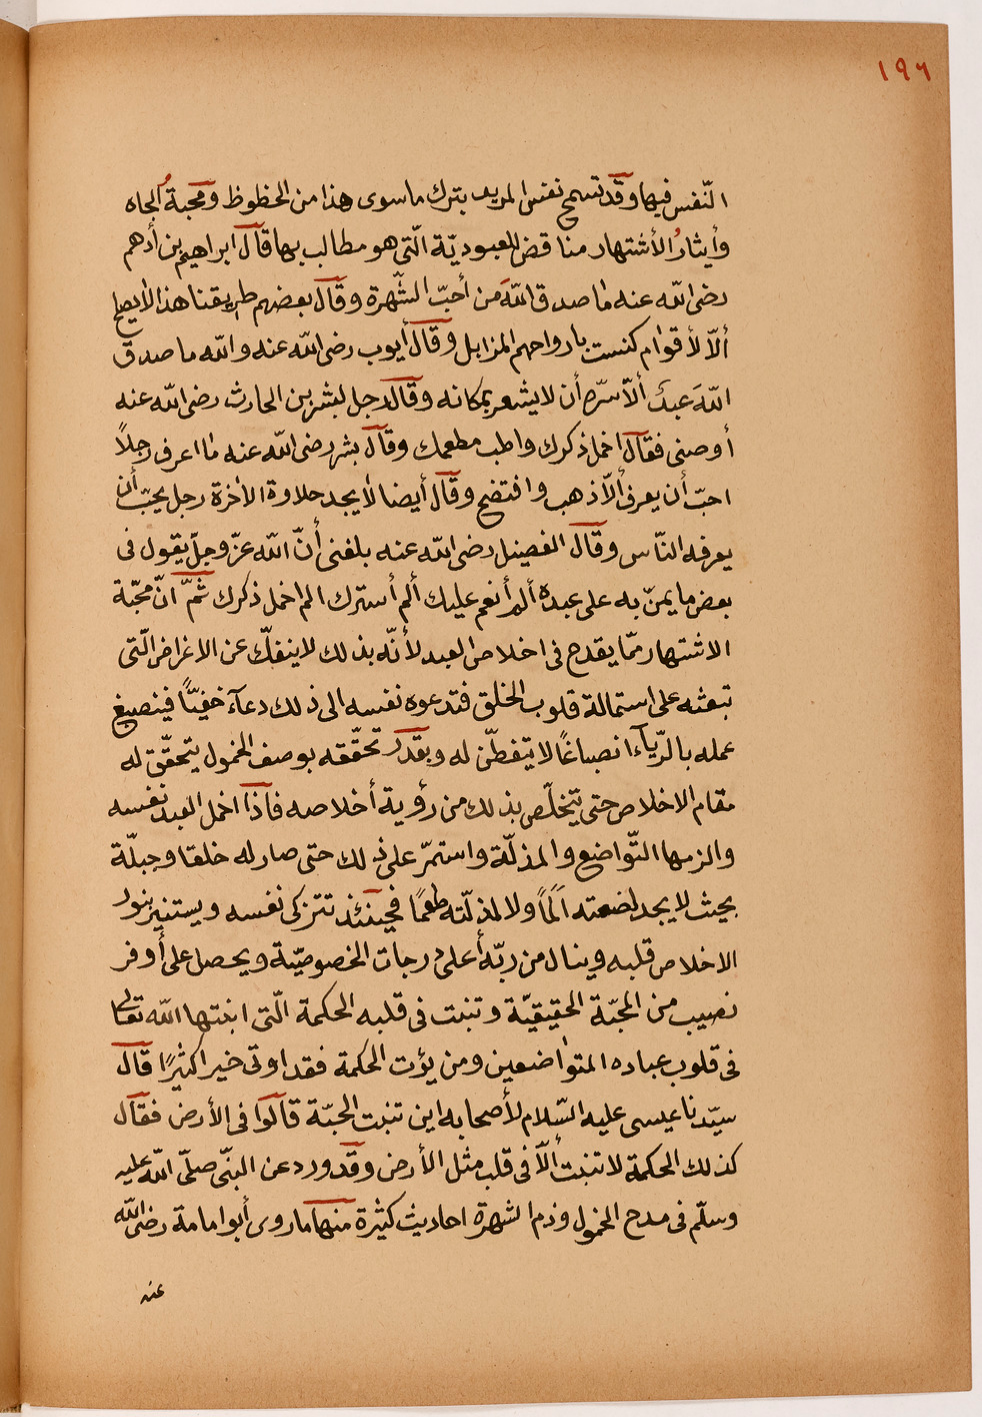 ١٩٦
النّفس فيها وقد تسمح نفس المريد بترك ما سوى هذا من الحظوظ ومحبةُ الجاه
وأيثارُ الأشتهار مناقض للعبوديّة الّتى هو مطالب بها قال ابراهيم بن أدهم
رضى اللّه عنه ما صدق اللّهَ من أحبّ الشّهرة وقال بعضهم طريقنا هذا لا يصلح
ألّا لأقوام كنست بارواحهم المزابل وقال أيوب رضى اللّه عنه واللّه ما صدق
اللّهَ عبدٌ ألّا سرّه أن لا يشعر بمكانه وقال رجل لبشر بن الحارث رضى اللّه عنه
أوصنى فقال اخمل ذكرك واطب مطعمك وقال بشر رضى اللّه عنه ما اعرف رجلاً
احبّ أن يعرف ألّا ذهب وافتضح وقال أيضا لا يجد حلاوة الأخرة رجل يحبّ أن
يعرفه النّاس وقال الفضيل رضى اللّه عنه بلغنى أنّ اللّه عزّ وجلّ يقول فى
بعض ما يمنّ به على عبده ألم أنعم عليك ألم أسترك الم اخمل ذكرك ثمّ انّ محبّة
الاشتهار ممّا يقدح فى اخلاص العبد لأنّه بذلك لا ينفكّ عن الاغراض الّتى
تبعثه على استمالة قلوب الخلق فتدعوه نفسه الى ذلك دعآء خفيًّا فينصبغ
عمله بالرّيآء انصباغًا لا يتفطّن له وبقدر تحقّقه بوصف الخمول يتحقّق له
مقام الاخلاص حتى يتخلّص بذلك من رؤية أخلاصه فاذا اخمل العبد نفسه
والزمها التّواضع والمذلّة واستمرّ على ذلك حتى صار له خلقا وجبلّة
بحيث لا يجد لضعته اَلَماً ولا لمذلّته طعمًا فحينئذ تتزكى نفسه ويستنير بنور
الاخلاص قلبه وينال من ربّه أعلى درجات الخصوصيّة ويحصل على أوفر
نصيب من المحبّة الحقيقيّة وتنبت فى قلبه الحكمة الّتى انبتها اللّه تعالى
فى قلوب عباده المتواضعين ومن يؤت الحكمة فقد اوتى خيرا كثيرًا قال
سيّدنا عيسى عليه السّلام لأصحابه اين تنبت الحبّة قالوا فى الأرض فقال
كذلك الحكمة لا تنبت ألّا فى قلب مثل الأرض وقد ورد عن النبّى صلّى اللّه عليه
وسلّم فى مدح الخمول وذم الشهرة احاديث كثيرة منها ما روى أبو امامة رضى اللّه
عنه